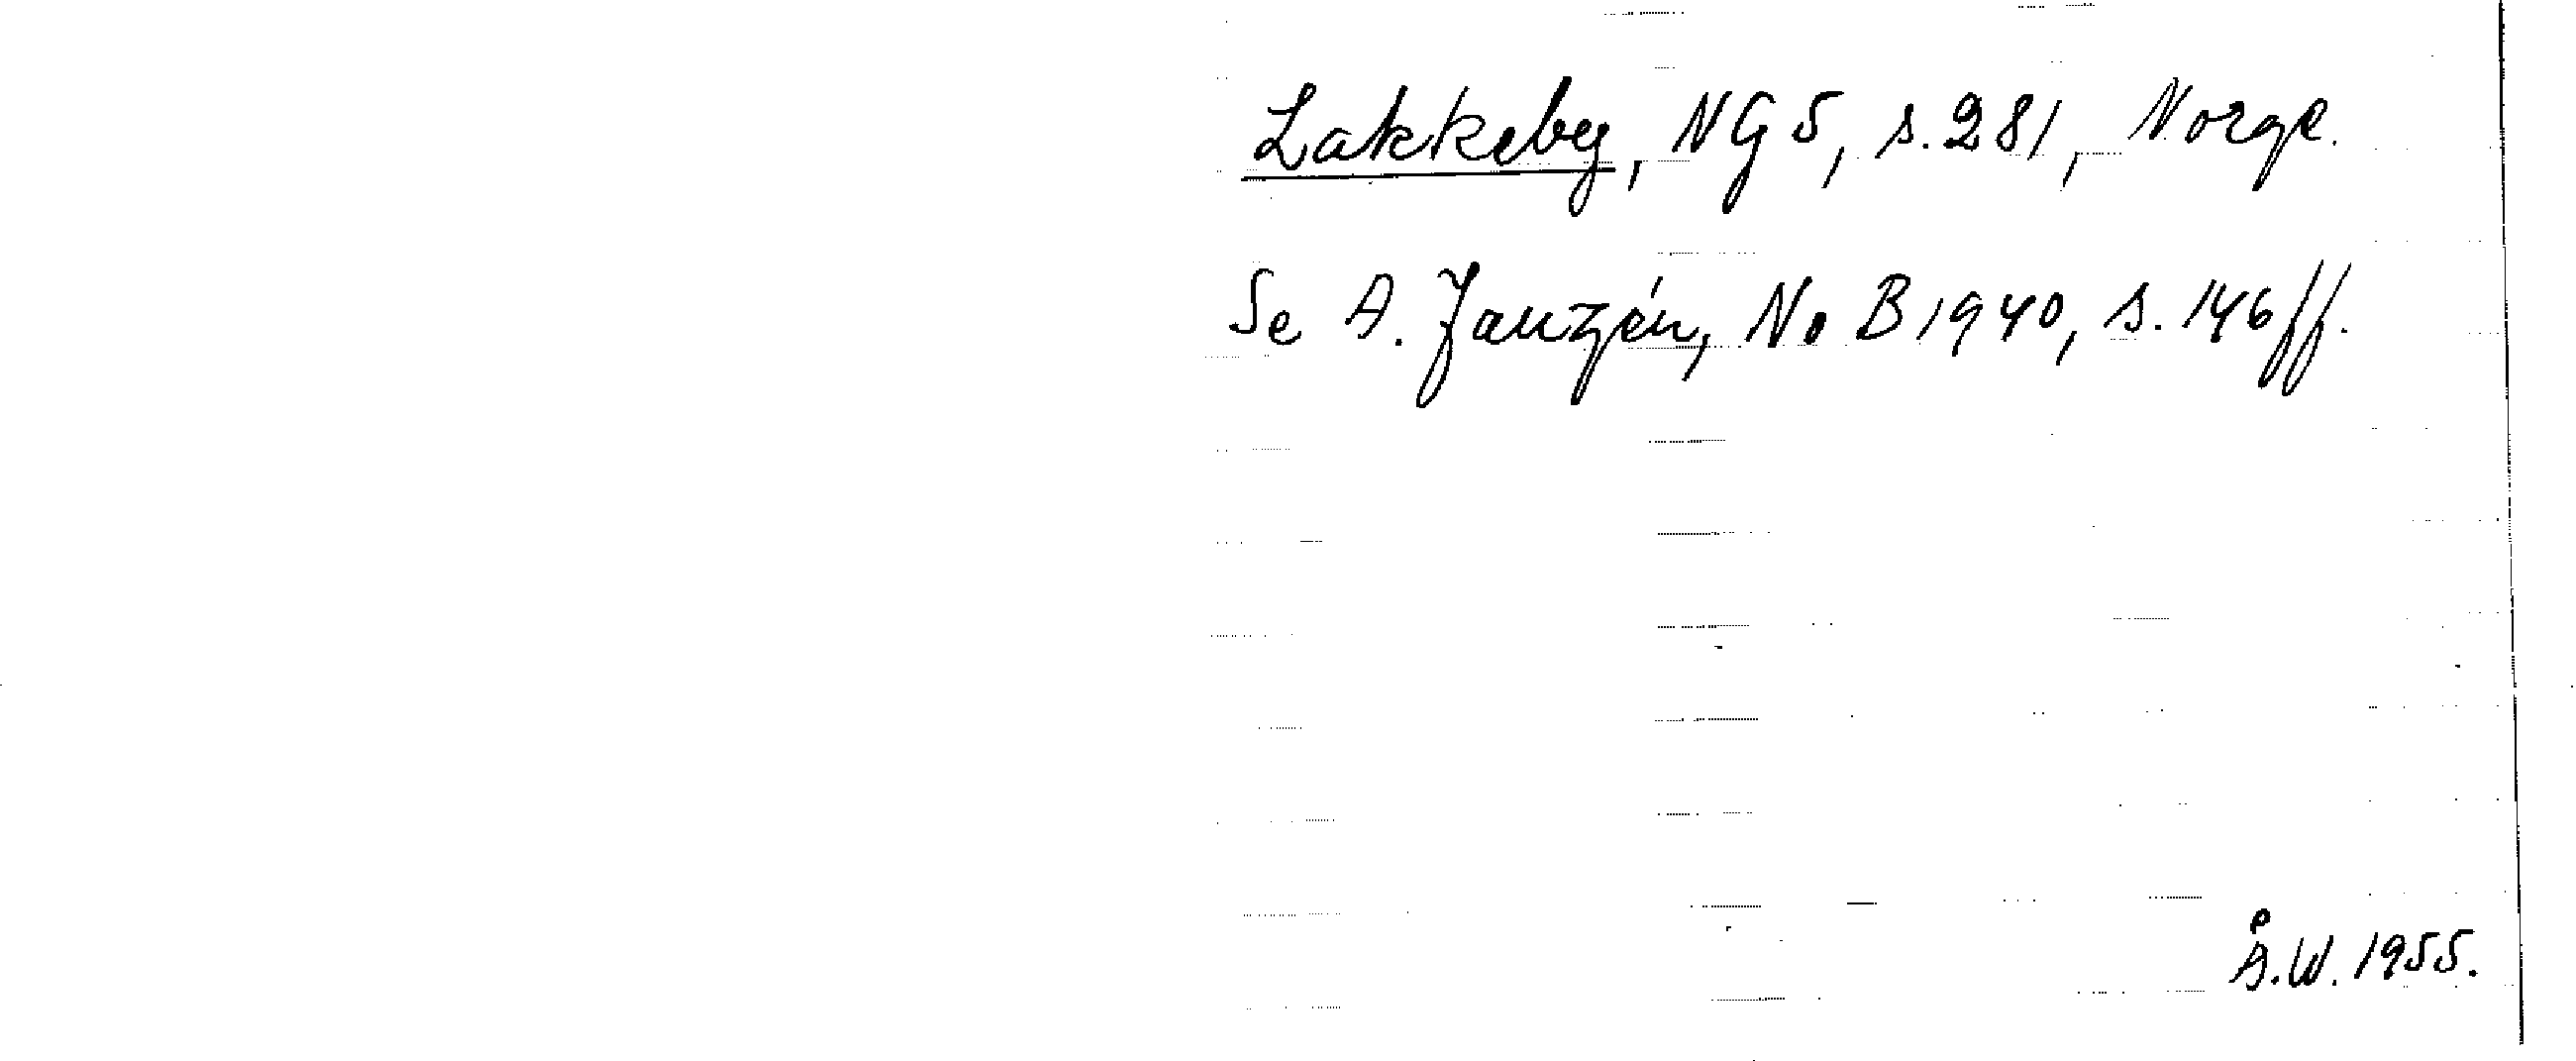 Lakkeby, NG 5, s. 281, Norge.
Se A. Janzén, No B 1940, s. 146 ff.
Å.W. 1955.